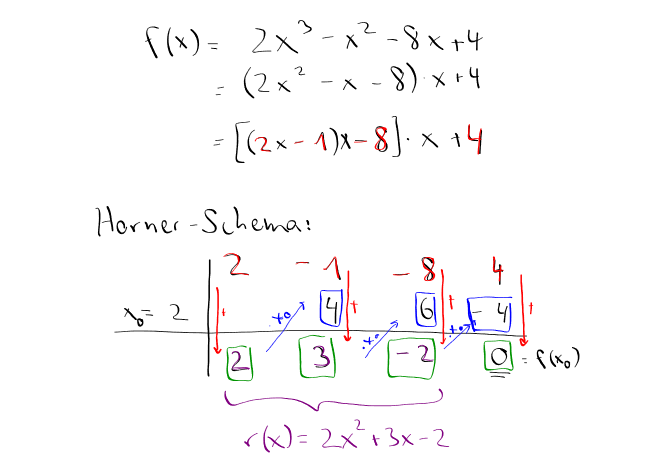 f(x) = 2x³ - x² - 8x + 4
= (2x² - x - 8) · x + 4
= [(2x - 1)x - 8] · x + 4
Horner-Schema:
2 - 1 - 8 4
x₀ = 2 + ·x₀ 4 + ·x₀ 6 + ·x₀ - 4 +
2 3 - 2 0 = f(x₀)
r(x) = 2x² + 3x - 2